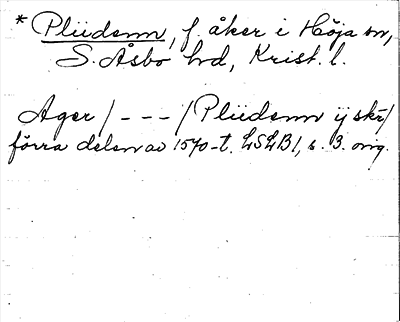 * Plüdsnn, f. åker i Höja sn,
S. Åsbo hd, Krist. l.
Ager / - - - / Plüdsnn ij skr/
förra delen av 1570-t. LSLB1, s. 3. orig.